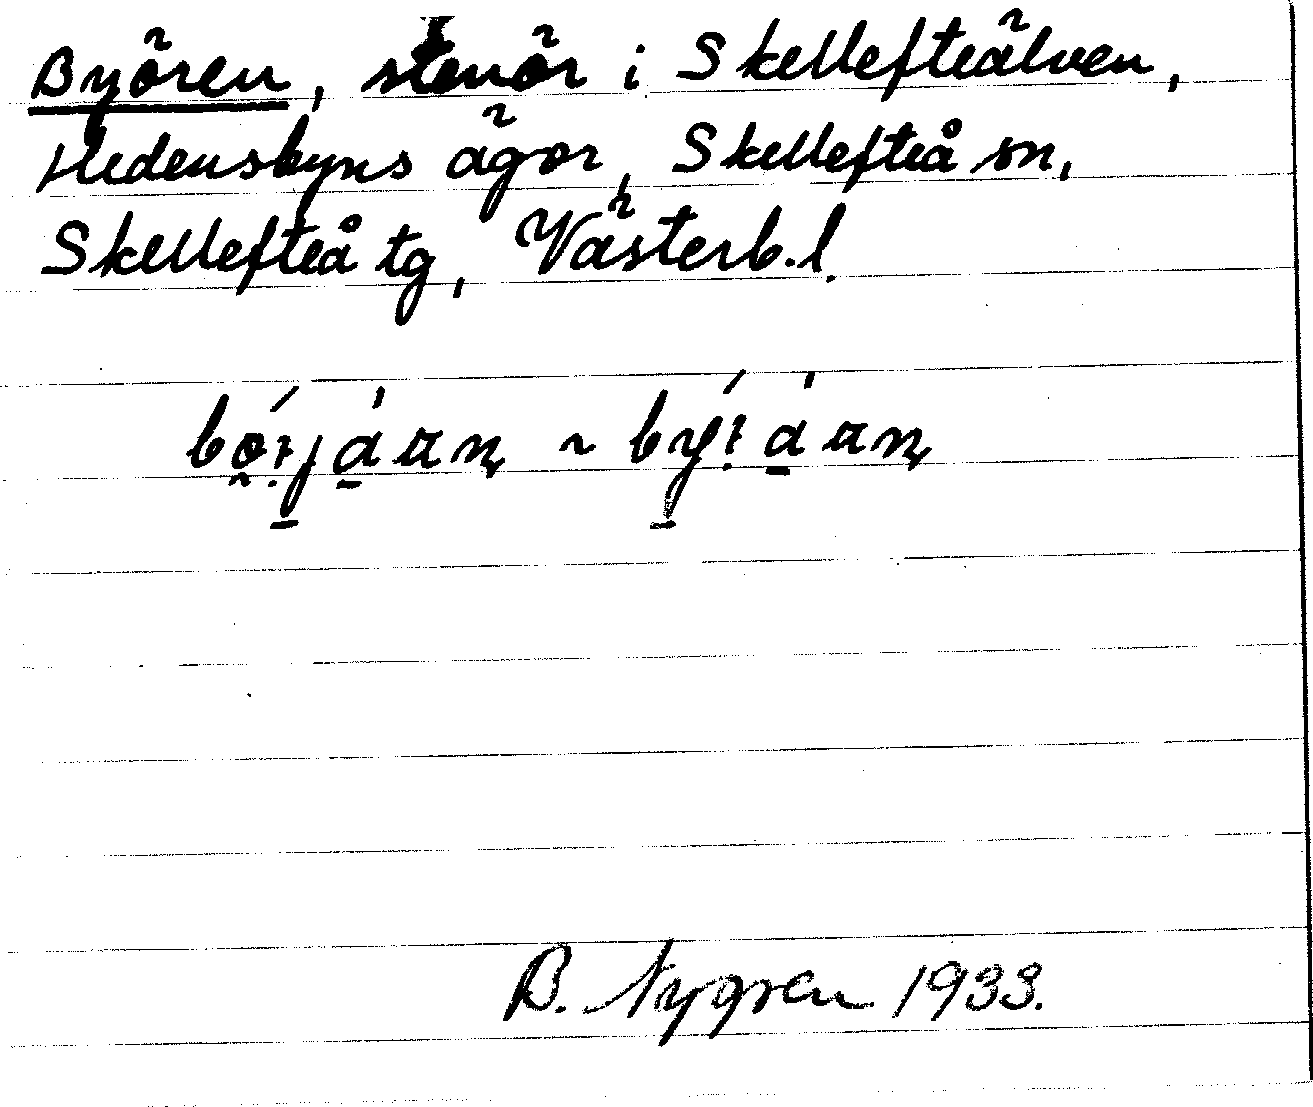 Byören, stenör i Skellefteälven,
Hedensbyns ägor, Skellefteå sn,
Skellefteå tg, Västerb.l.
B. Nygren 1933.